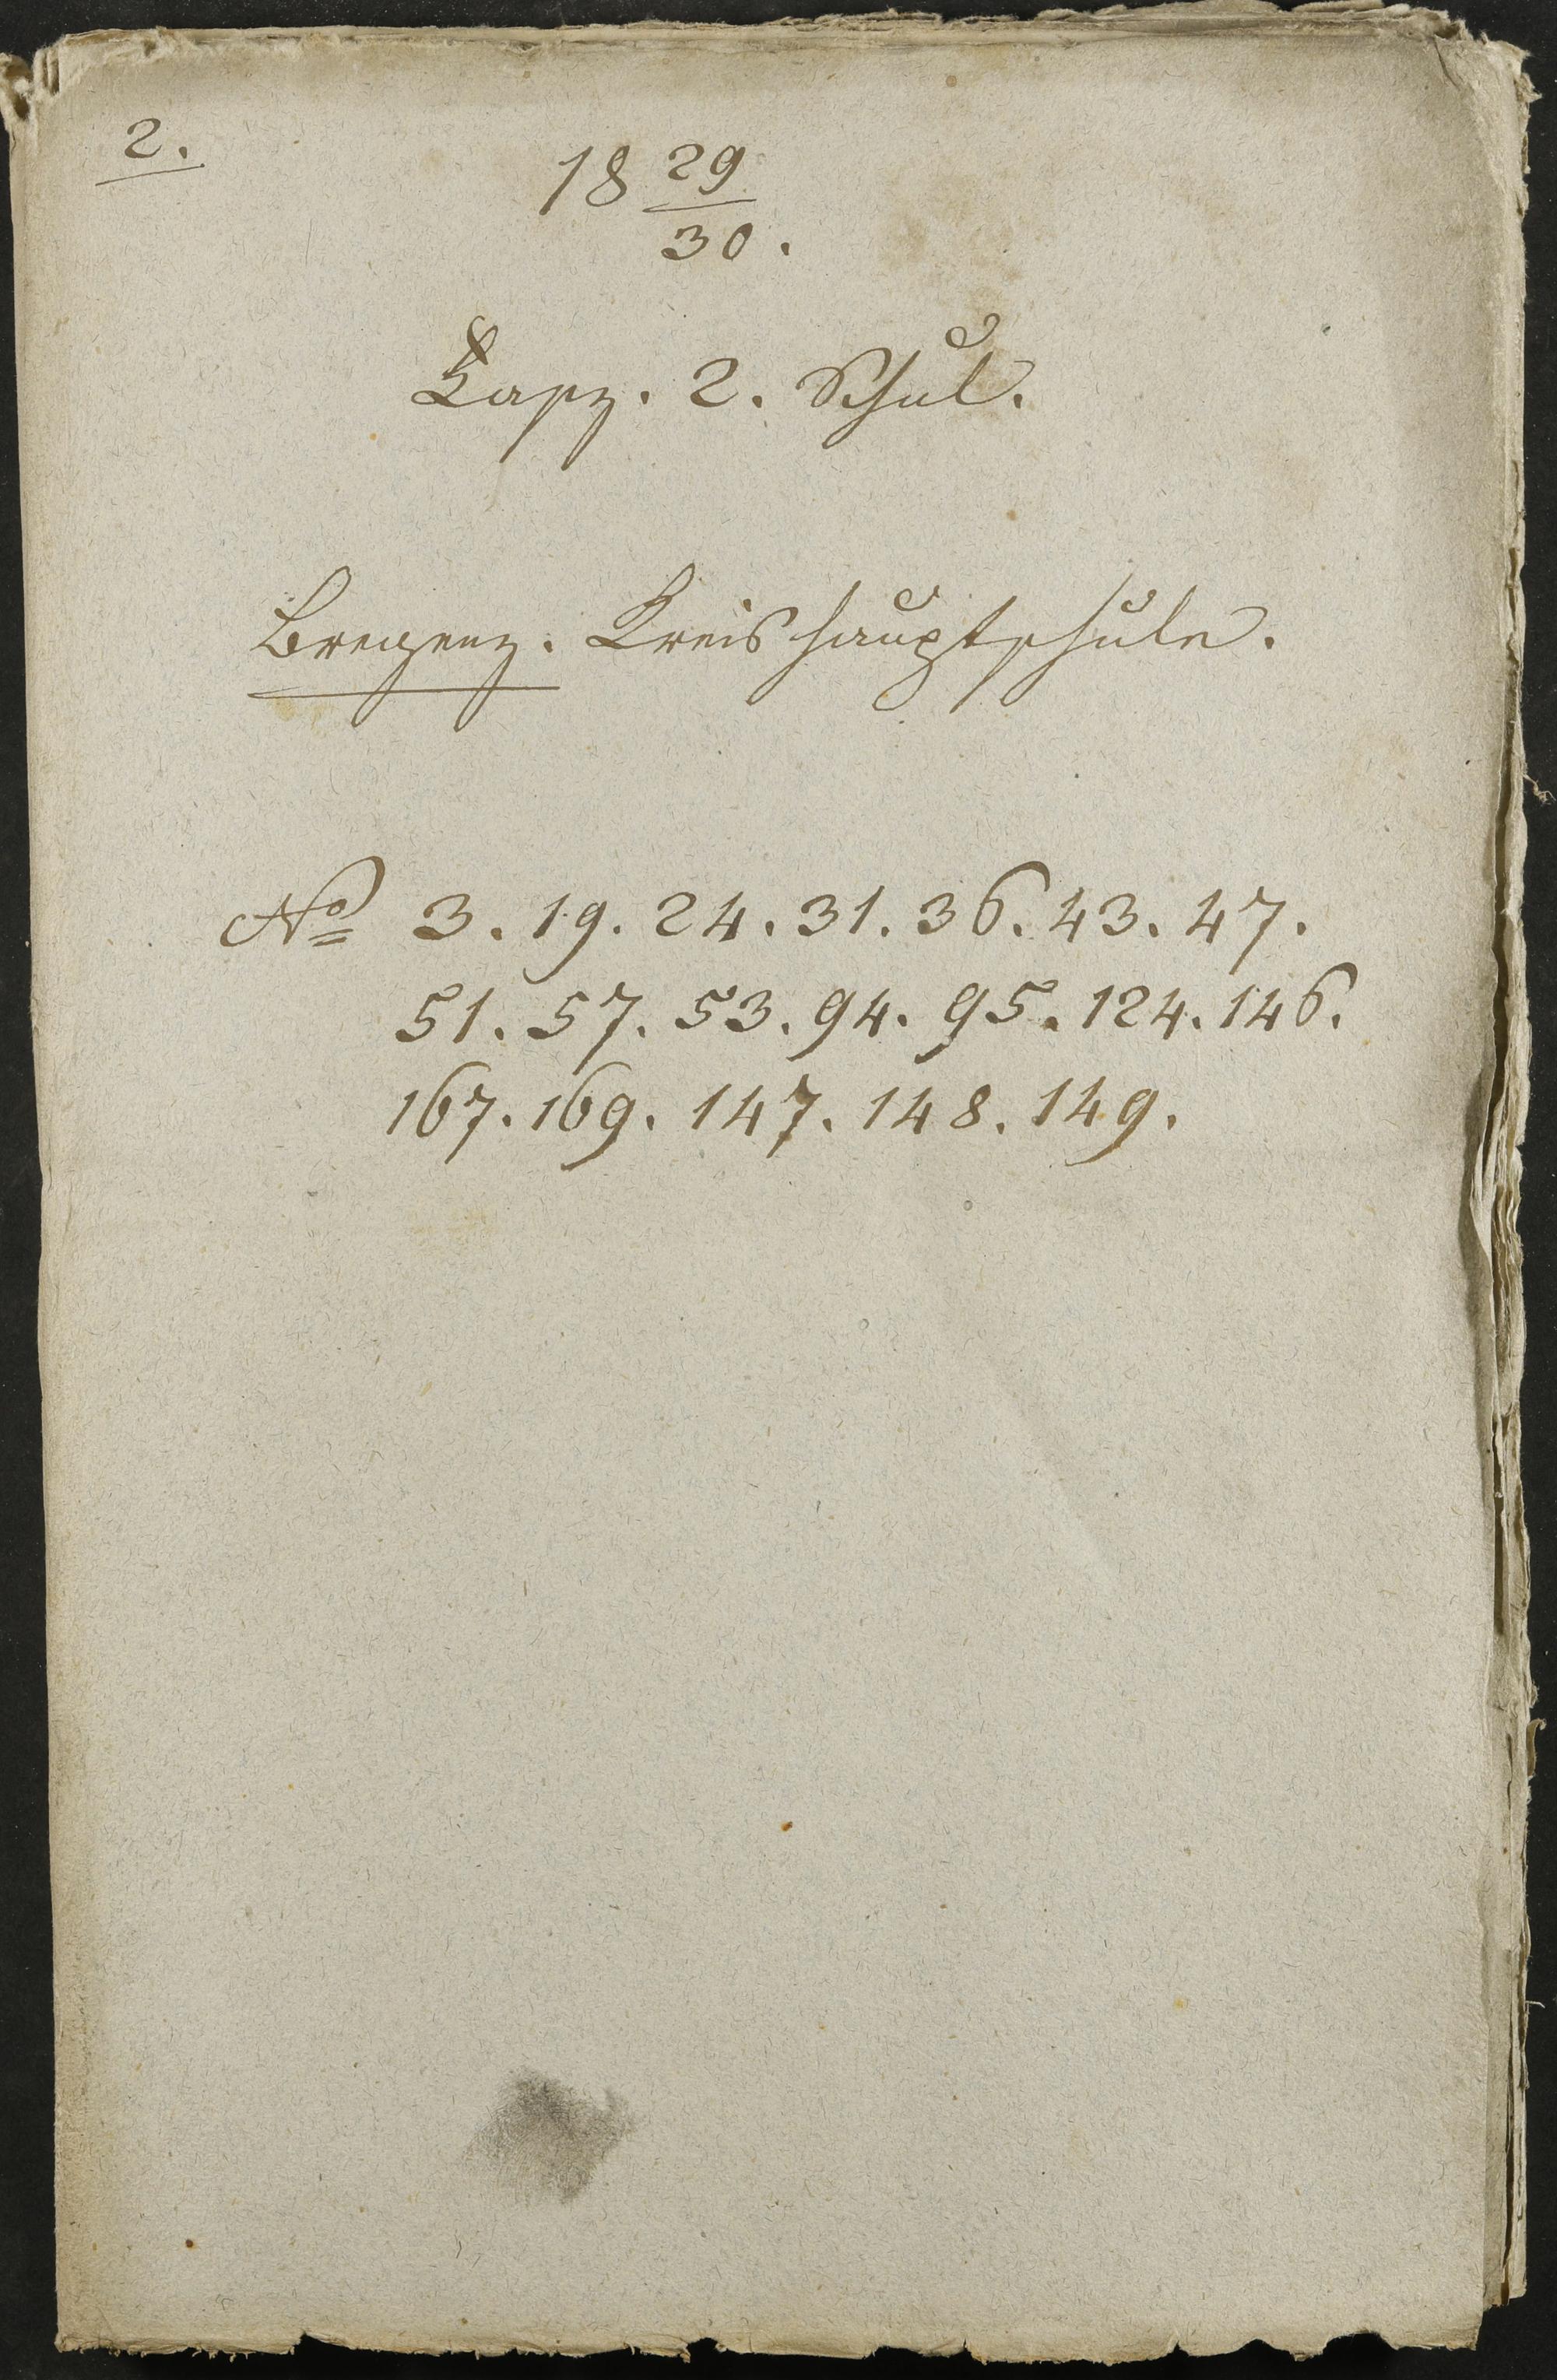 2.
18 29/30.
Fasz. 2. Schul.
Bregenz. Kreishauptschule.
No 3. 19. 24. 31. 36. 43. 47.
51. 57. 53. 94. 95. 124. 146.
167. 169. 147. 148. 149.